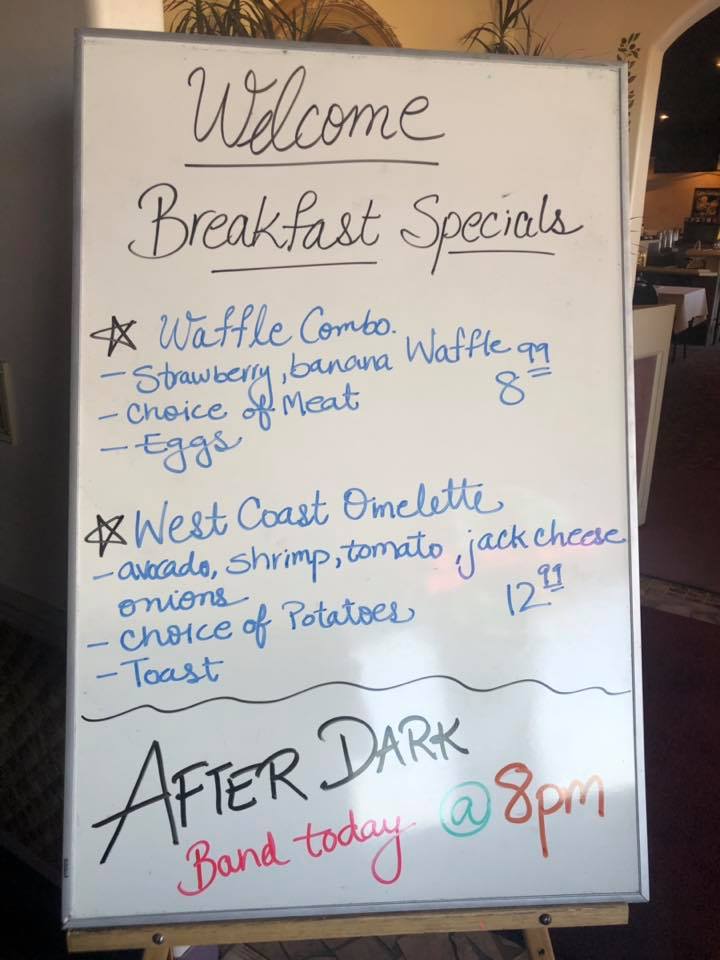 Welcome
Breakfast Specials
☆ Waffle Combo.
- Strawberry, banana Waffle 8.99
- Choice of Meat
- Eggs
☆ West Coast Omelette
- avocado, shrimp, tomato, jack cheese
onions 12.99
- Choice of Potatoes
- Toast
AFTER DARK
Band today @ 8pm